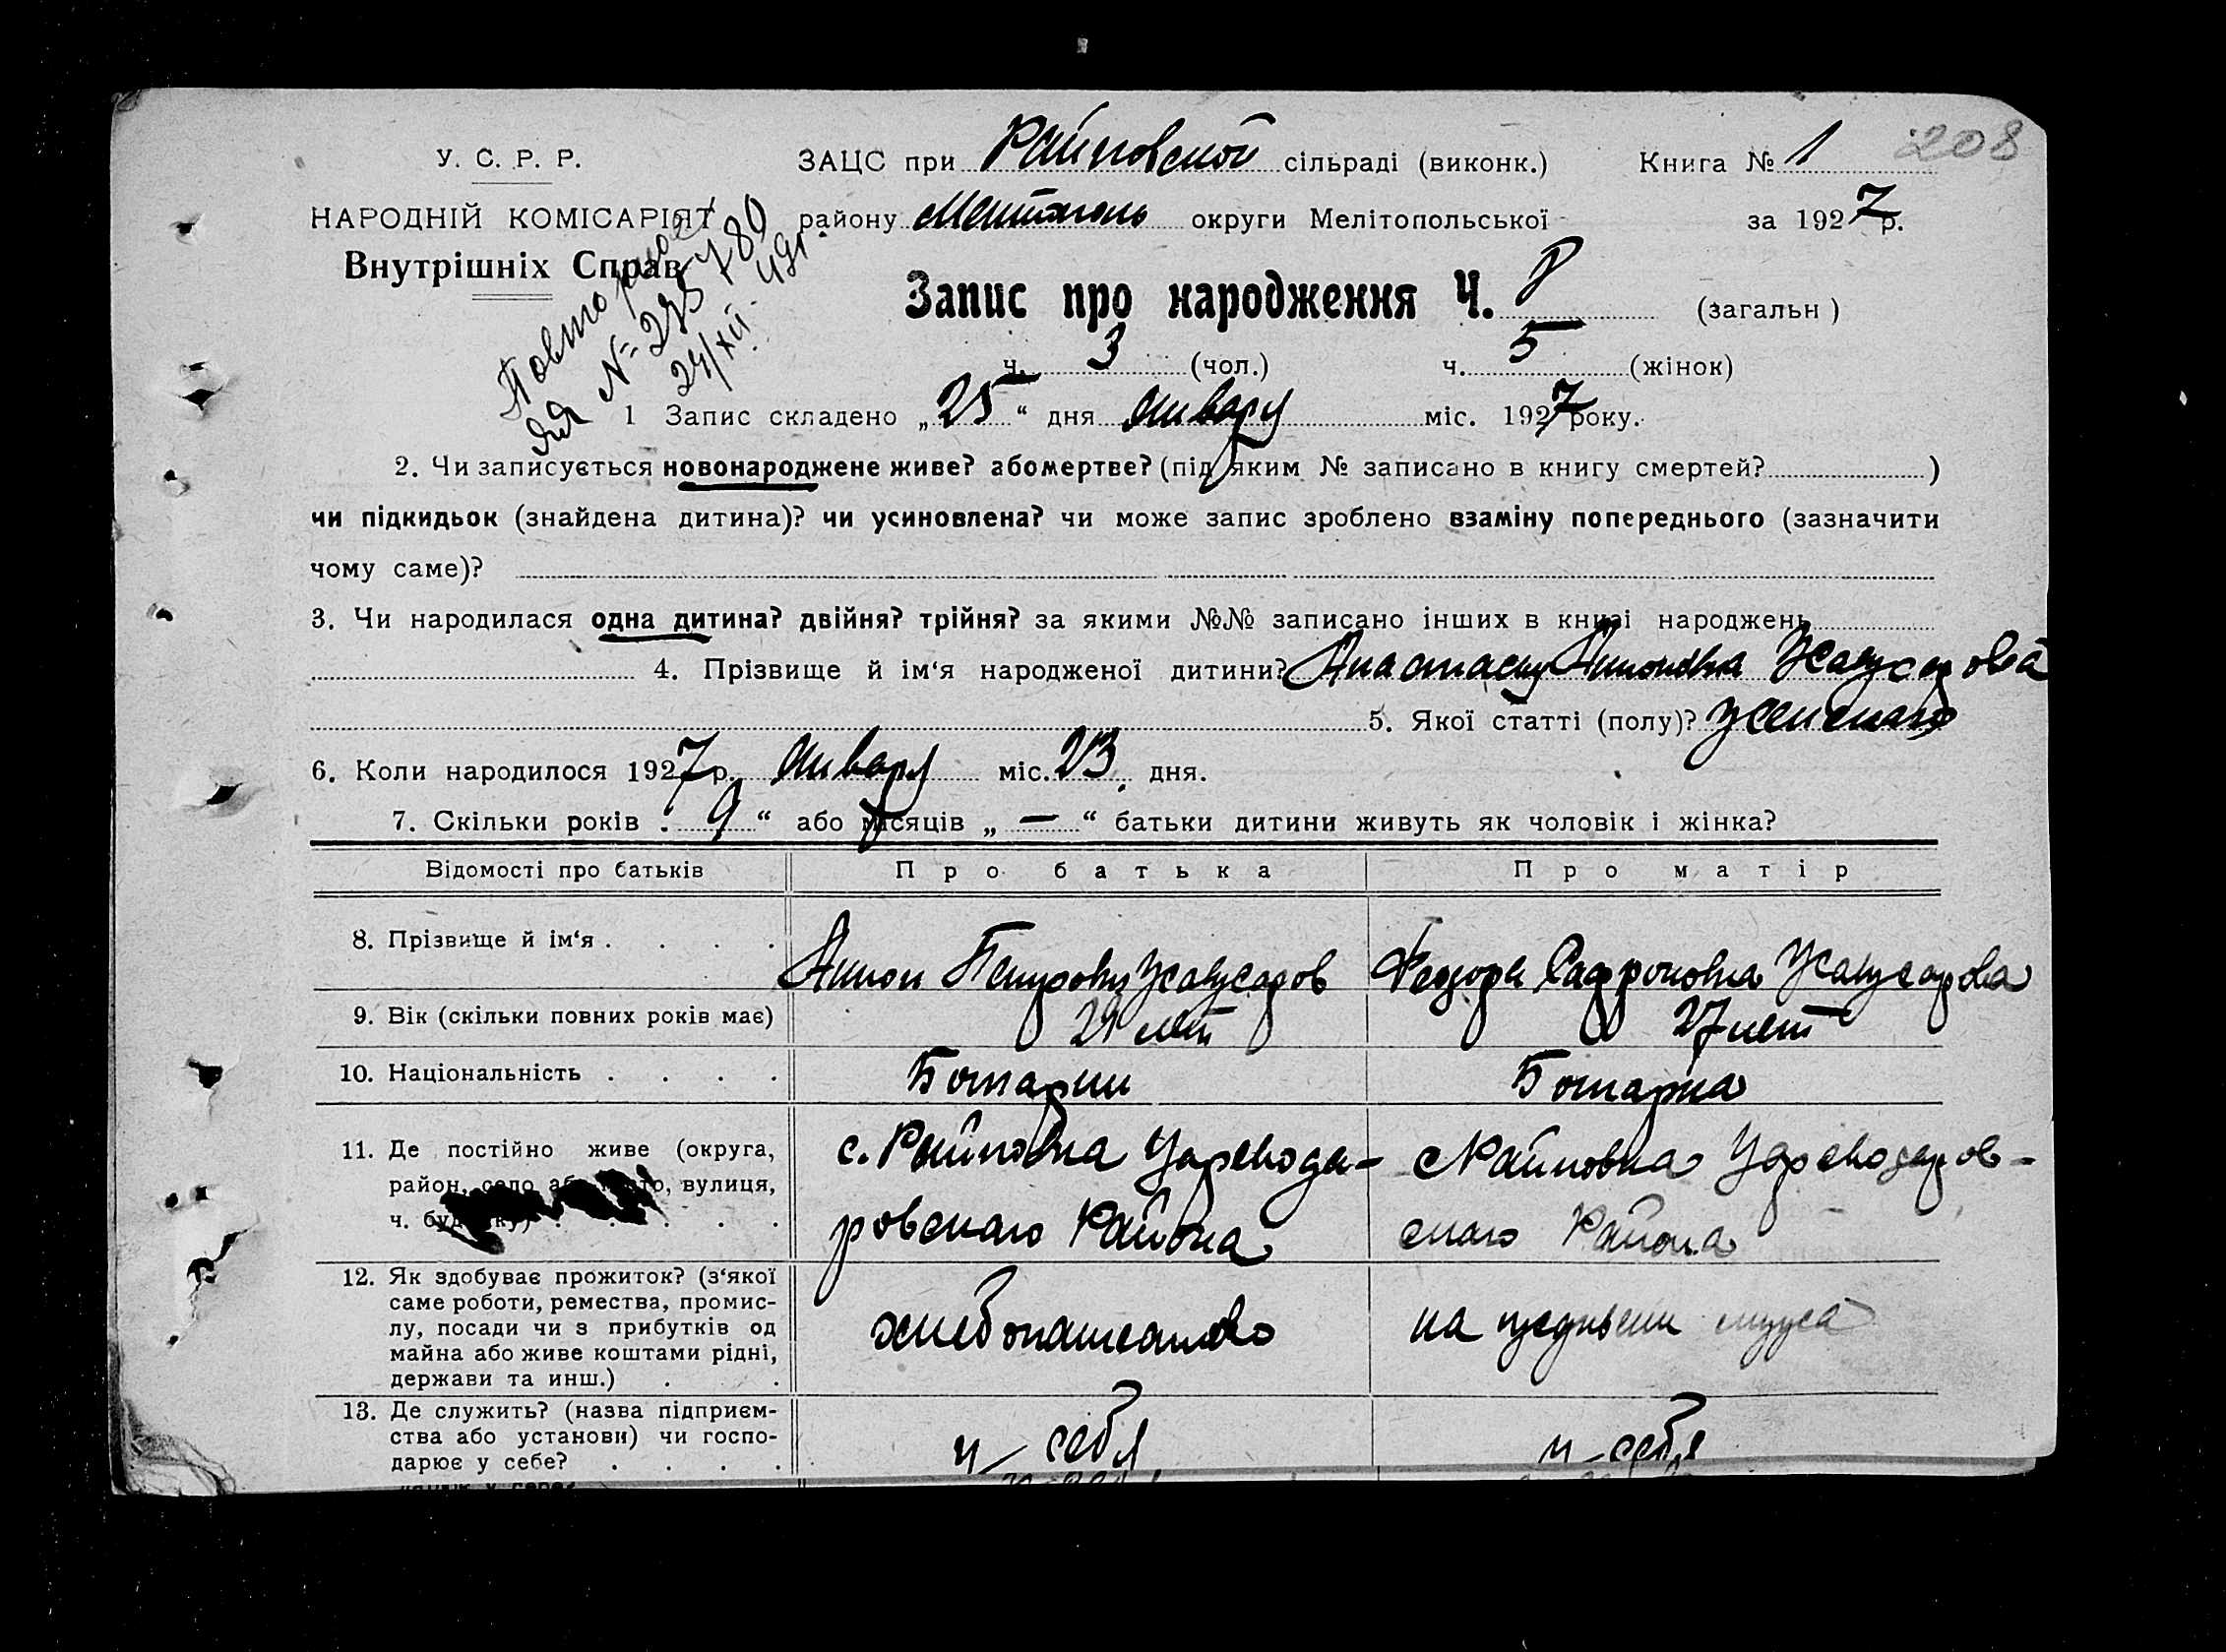 208
У. С. Р. Р.
ЗАЦС при Райновской сільраді (виконк.) Книга № 1
НАРОДНІЙ КОМІСАРІЯТ
району Мелитополь округи Мелітопольської за 1927 р.
Внутрішніх Справ
Повторное
ЯЯ № 275780
24/XII-49г.
Запис про народження Ч. 8 (загальн)
ч. 3 (чол.) ч. 5 (жінок)
1 Запис складено „25“ дня января міс. 1927 року.
2. Чи записується новонароджене живе? або мертве? (під яким № записано в книгу смертей? )
чи підкидьок (знайдена дитина)? чи усиновлена? чи може запис зроблено взаміну попереднього (зазначити
чому саме)?
3. Чи народилася одна дитина? двійня? трійня? за якими №№ записано інших в книзі народжень
4. Прізвище й ім‘я народженої дитини? Анастасия Антоновна Жалусарова
5. Якої статті (полу)? женскаго
6. Коли народилося 1927 р. января міс. 23 дня.
7. Скільки років „ 9 “ або місяців „ — “ батьки дитини живуть як чоловік і жінка?
Відомості про батьків Про батька Про матір
8. Прізвище й ім‘я . . . . Антон Петрович Федора Сафроновна
9. Вік (скільки повних років має) 29 лет 27 лет
10. Національність . . . . Болгарин Болгарка
11. Де постійно живе (округа,
район, село або місто, вулиця,
ч. будинку) . . . . .
с. Райновка Царевода-
ровскаго Района
с Райновка Цареводаров-
скаго Района
12. Як здобуває прожиток? (з‘якої
саме роботи, ремества, промис-
лу, посади чи з прибутків од
майна або живе коштами рідні,
держави та инш.) . .
хлебопашество
на иждивени мужа
13. Де служить? (назва підприєм-
ства або установи) чи госпо-
дарює у себе? . . . .
у себя
у себя